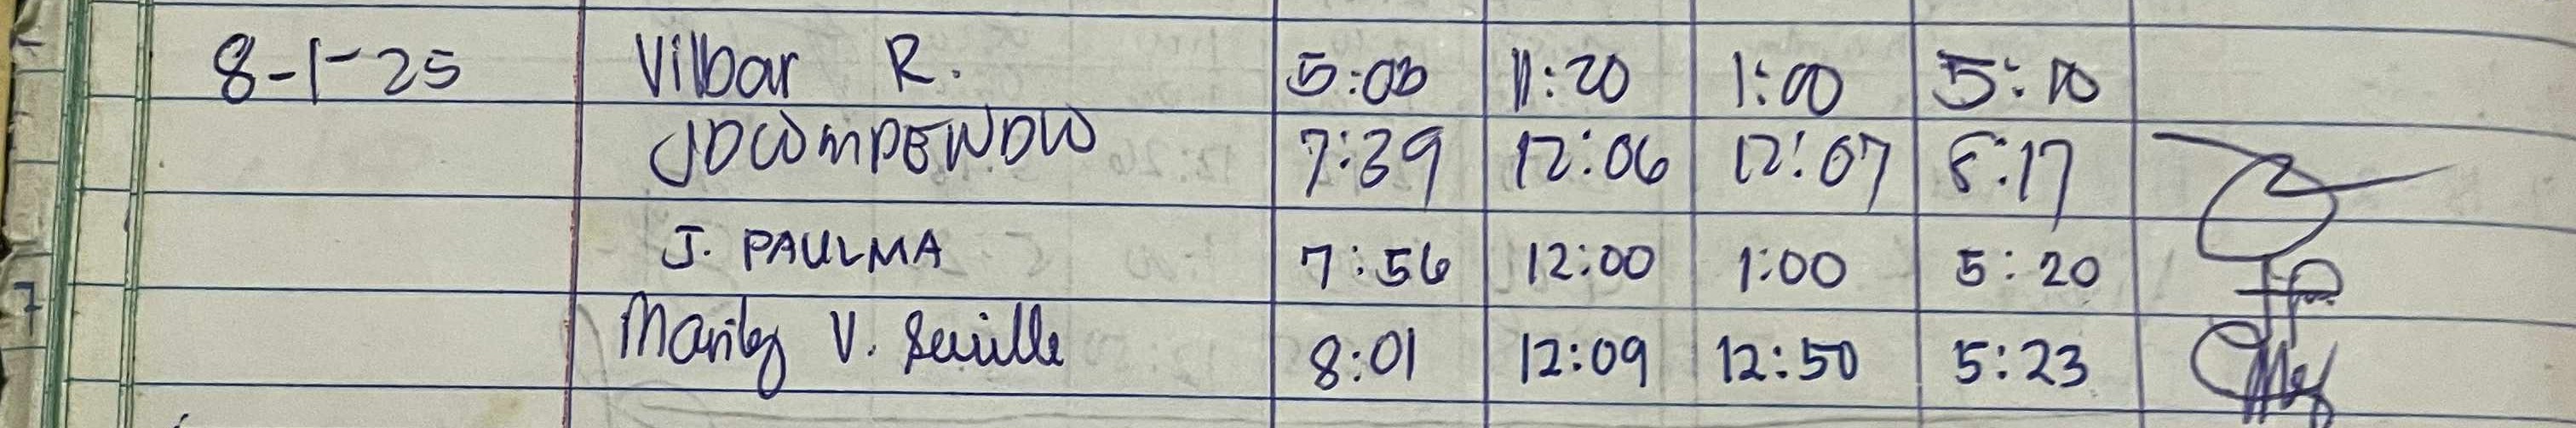 8-1-25 Vilbar R. 5:00 11:20 1:00 5:10
7:39 12:06 12:07 5:17
J. PAULMA 7:56 12:00 1:00 5:20
V. Seville 8:01 12:09 12:50 5:23
7